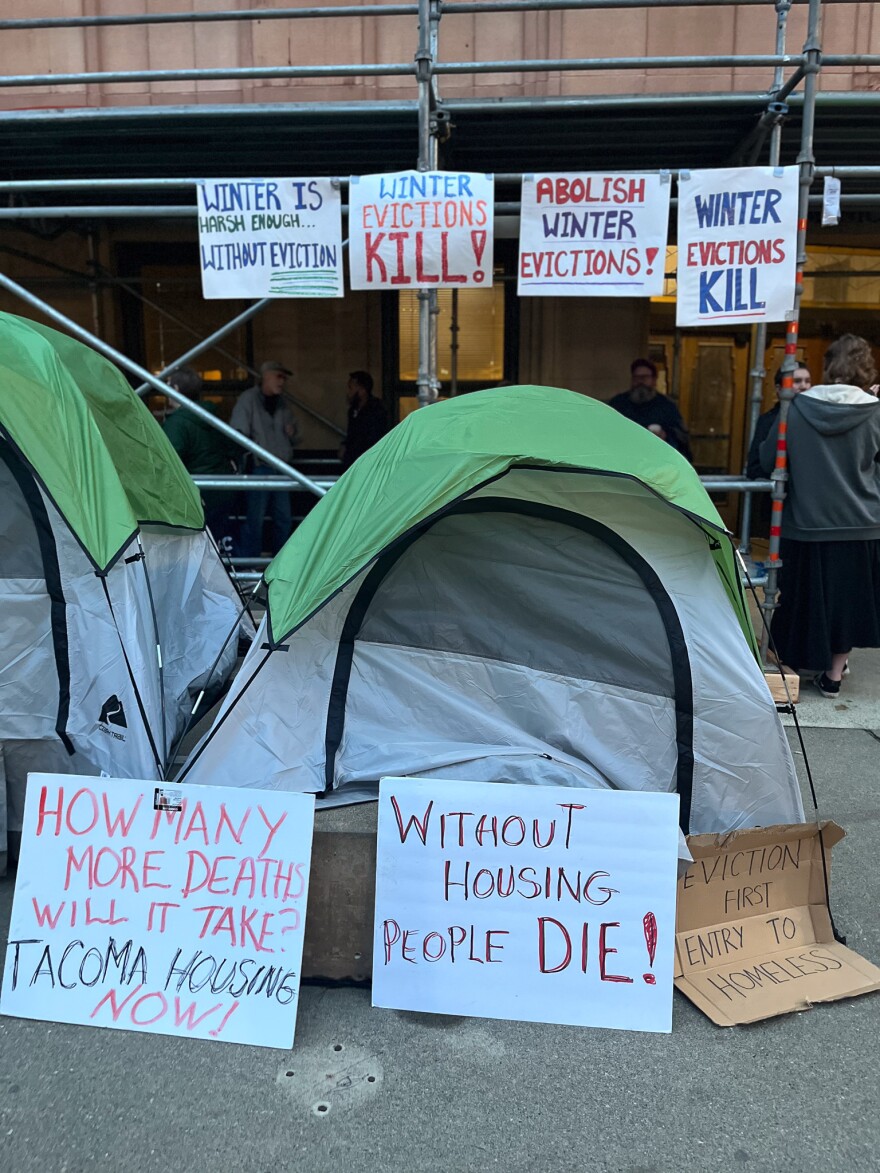 WINTER IS
HARSH ENOUGH...
WITHOUT EVICTION
WINTER
EVICTIONS
KILL!
ABOLISH
WINTER
EVICTIONS!
WINTER
EVICTIONS
KILL
OZARK TRAIL
HOW MANY
MORE DEATHS
WILL IT TAKE?
TACOMA HOUSING
NOW!
WITHOUT
HOUSING
PEOPLE DIE!
EVICTION
FIRST
ENTRY TO
HOMELESS